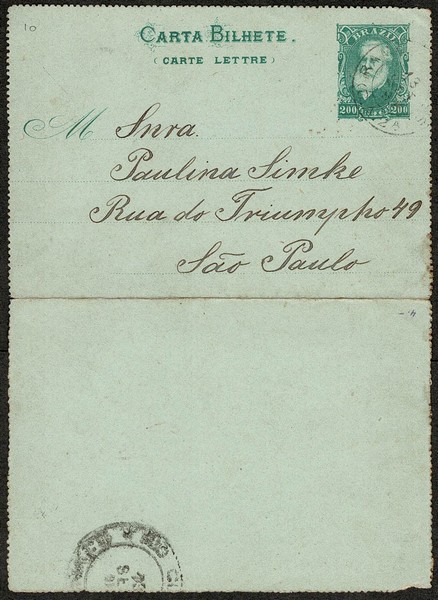 10
CARTA BILHETE.
(CARTE LETTRE)
BRAZIL
200 200
M Snra.
Paulina Simke
Rua do Triumpho 49
São Paulo